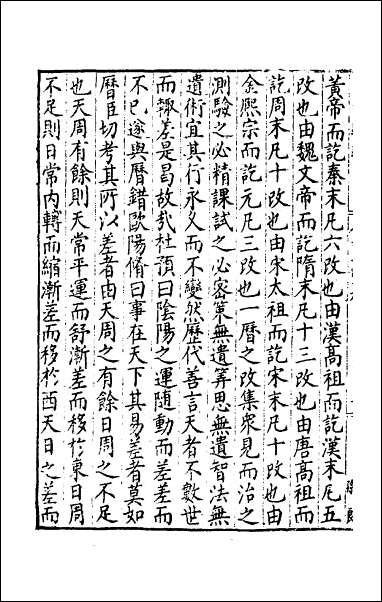 黃帝而訖秦末凡六改也由漢高祖而訖漢末凡五
改也由魏文帝而訖隋末凡十三改也由唐高祖而
訖周末凡十改也由宋太祖而訖宋末凡十改也由
金熙宗而訖元凡三改也一曆之改集衆見而治之
測驗之必精課試之必密策無遺筭思無遺智法無
遺術宜其行永乂而不變然歷代善言天者不數世
而輙差是曷故㢤杜預曰陰陽之運隨動而差差而
不已遂與曆錯歐陽脩曰事在天下其易差者莫如
曆臣切考其所以差者由天周之有餘日周之不足
也天周有餘則天常平運而舒漸差而移扵東日周
不足則日常内轉而縮漸差而移扵西天日之差而